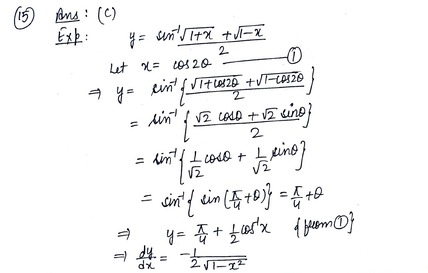 (15) Ans : (C)
Exp : y = sin⁻¹ (√(1+x) + √(1-x))/2
Let x = cos2θ ——— (1)
⇒ y = sin⁻¹{(√(1+cos2θ) + √(1-cos2θ))/2}
= sin⁻¹{(√2 cosθ + √2 sinθ)/2}
= sin⁻¹{1/√2 cosθ + 1/√2 sinθ}
= sin⁻¹{sin(π/4 + θ)} = π/4 + θ
⇒ y = π/4 + 1/2 cos⁻¹x {from (1)}
⇒ dy/dx = -1/(2√(1-x²))